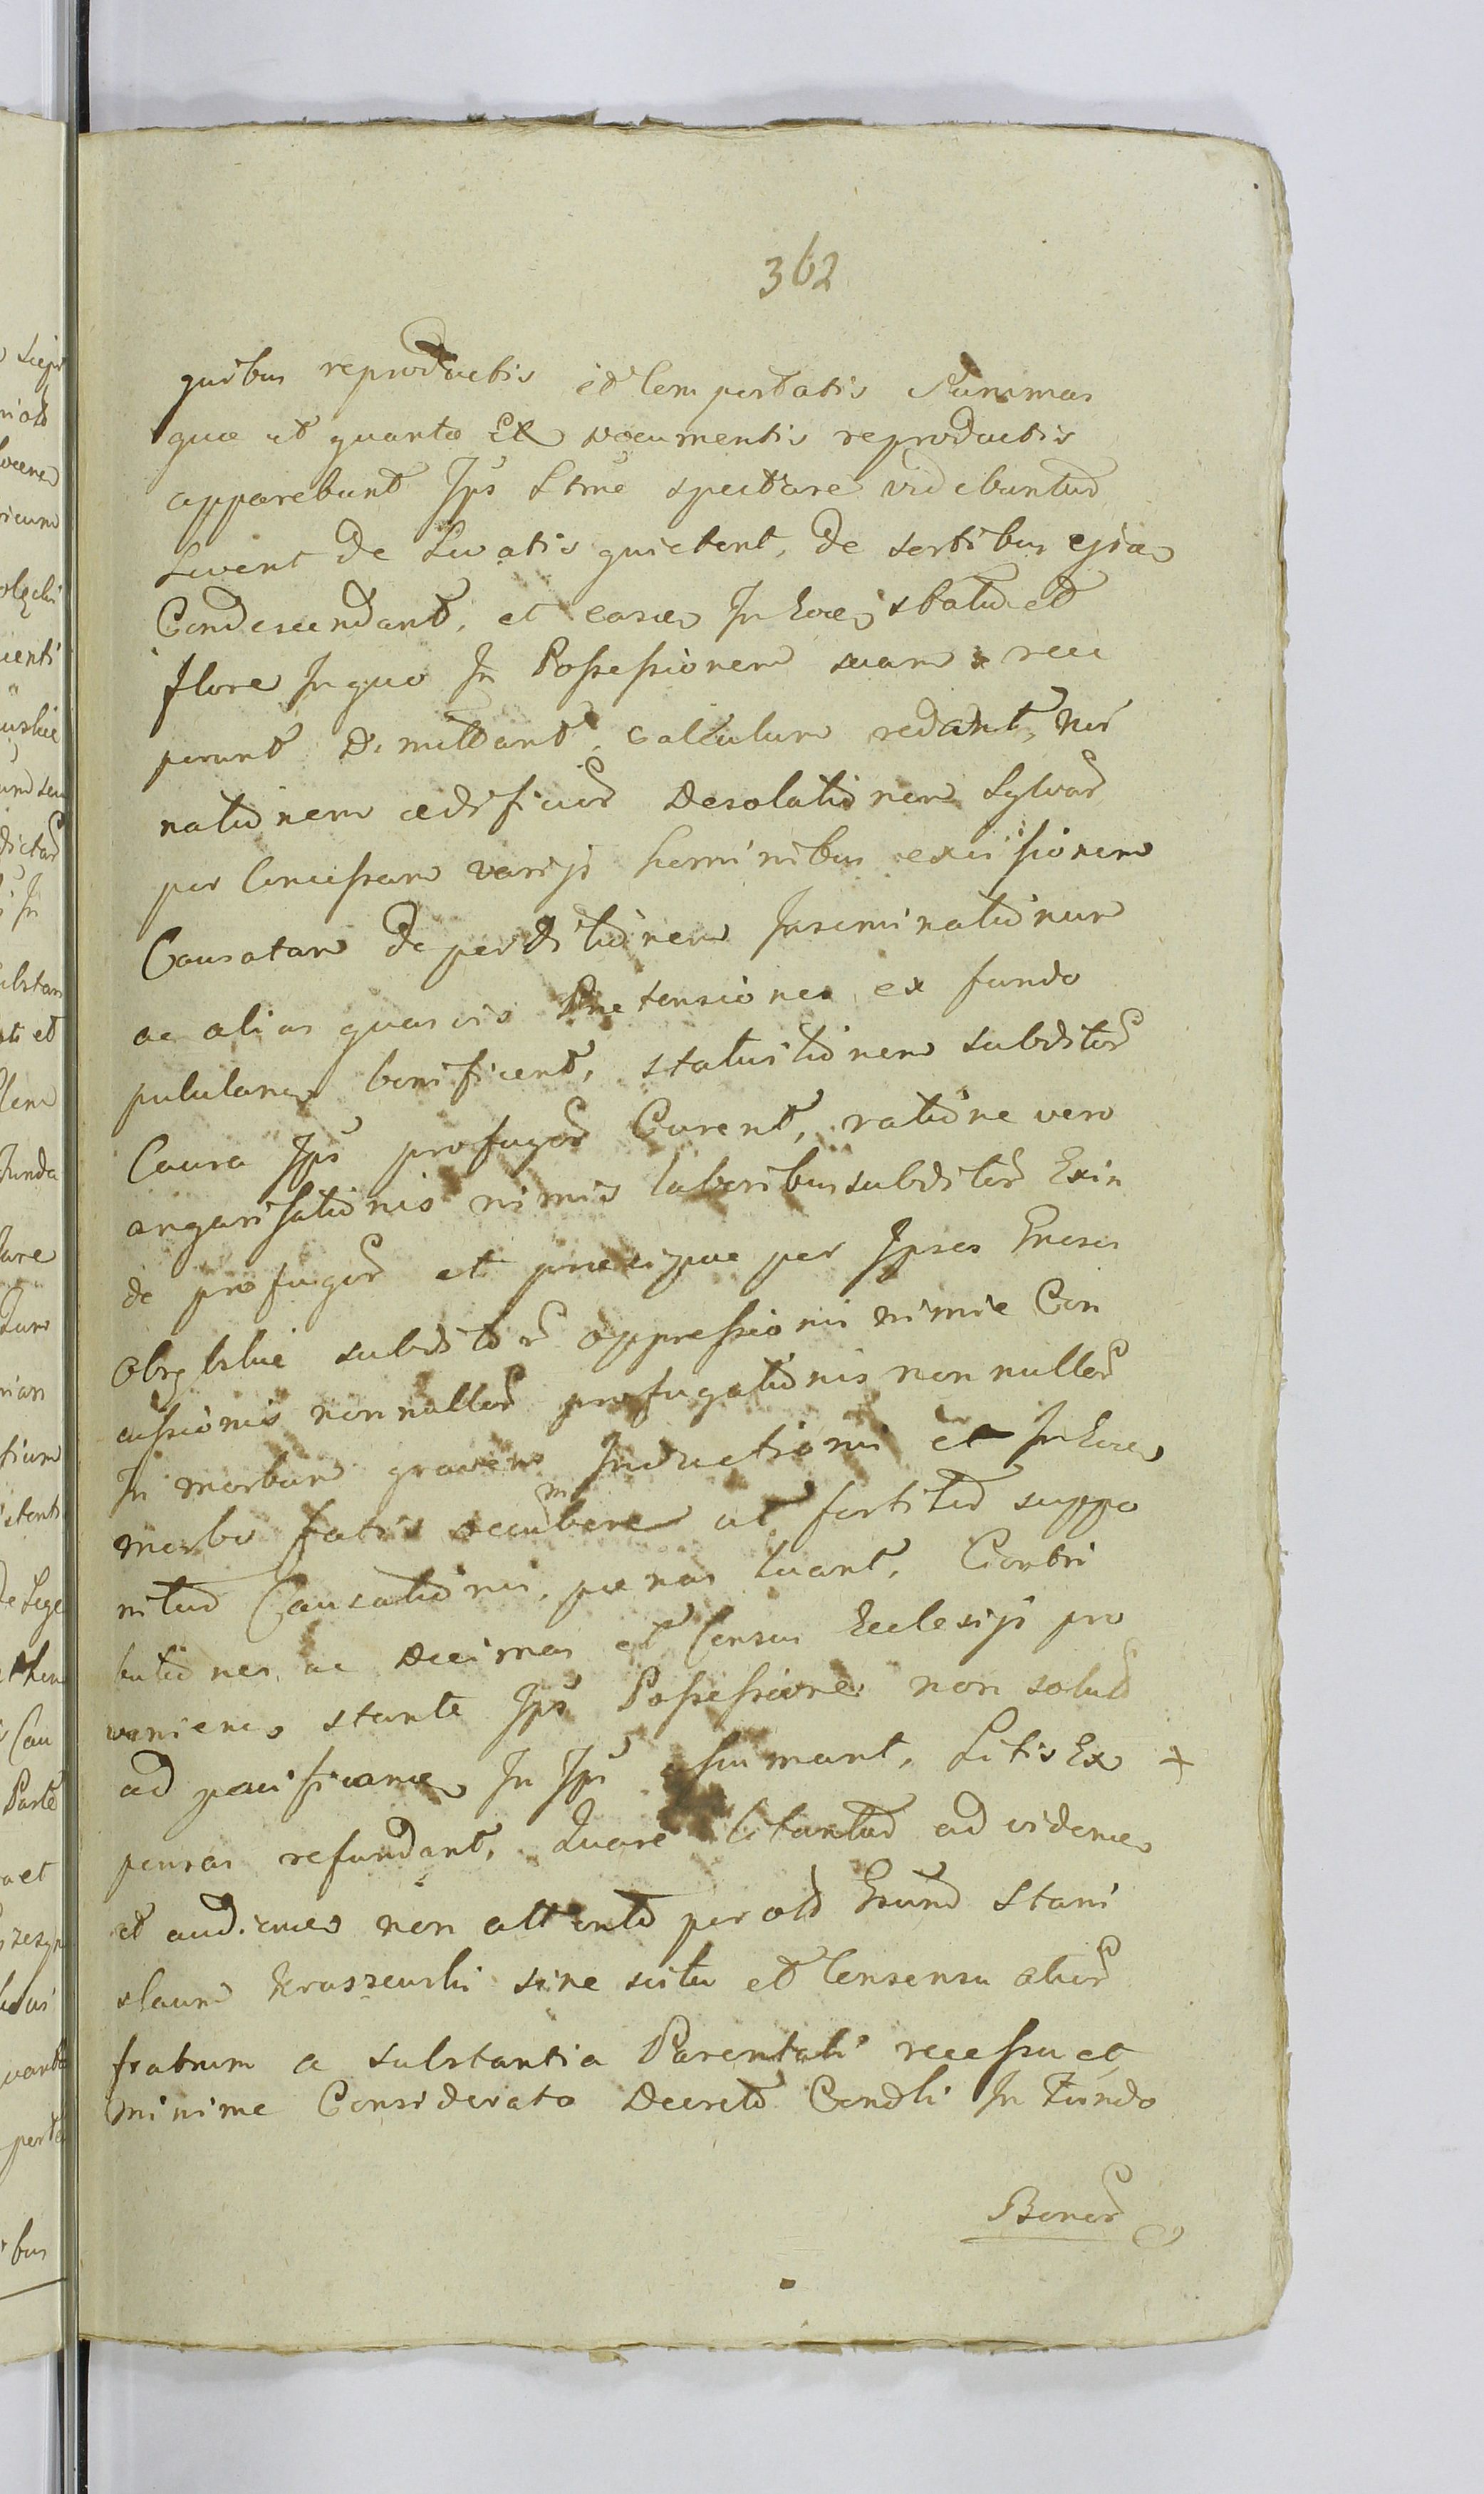 362
quibus reproductis et Comportatis Summas
quæ et quantæ Ex Documentis reproductis
apparebunt Jps Ltme spectare videbuntur
Levent de Levatis quietent, de sortibus
Condescendant, et easdem In Eoe statu et
flore In quo In Possessionem suam rece
perunt Dimittant, Calculum redant, Rui
nationem ædificior Desolationem Sylvar
per Concessam varijs hominibus excissionem
Causatam deperditionem Inseminationum
ac alias quasvis Prætensiones ex fundo
pululan bonificent, statuitionem subditor
Causa Jps profugor Curent, ratione vero
angarisationis nimis laboribus subditor Exin
de profugor et præcipue per Jpsos
subditor oppressionis nimiæ Con
cussionis nonnullor profugationis non nullor
In morbum gravem Inductionis et In Eoe
morbo fatis ut fertitur suppo
nitur Causationis, pænas luant, Contri
butiones, ac Decimas et Census Ecclesijs pro
venien stante Jps Possessione non solut
ad pacifican In Jps assumant, Litis Ex +
pensas refundant, Quare Citantur ad viden
et audien non attento per old Stani
slaum Kraszewski sine scitu et Consensu alior
fratrum a substantia Parentali recessu et
minime Considerato Decreto Condli In Fundo
Bonor